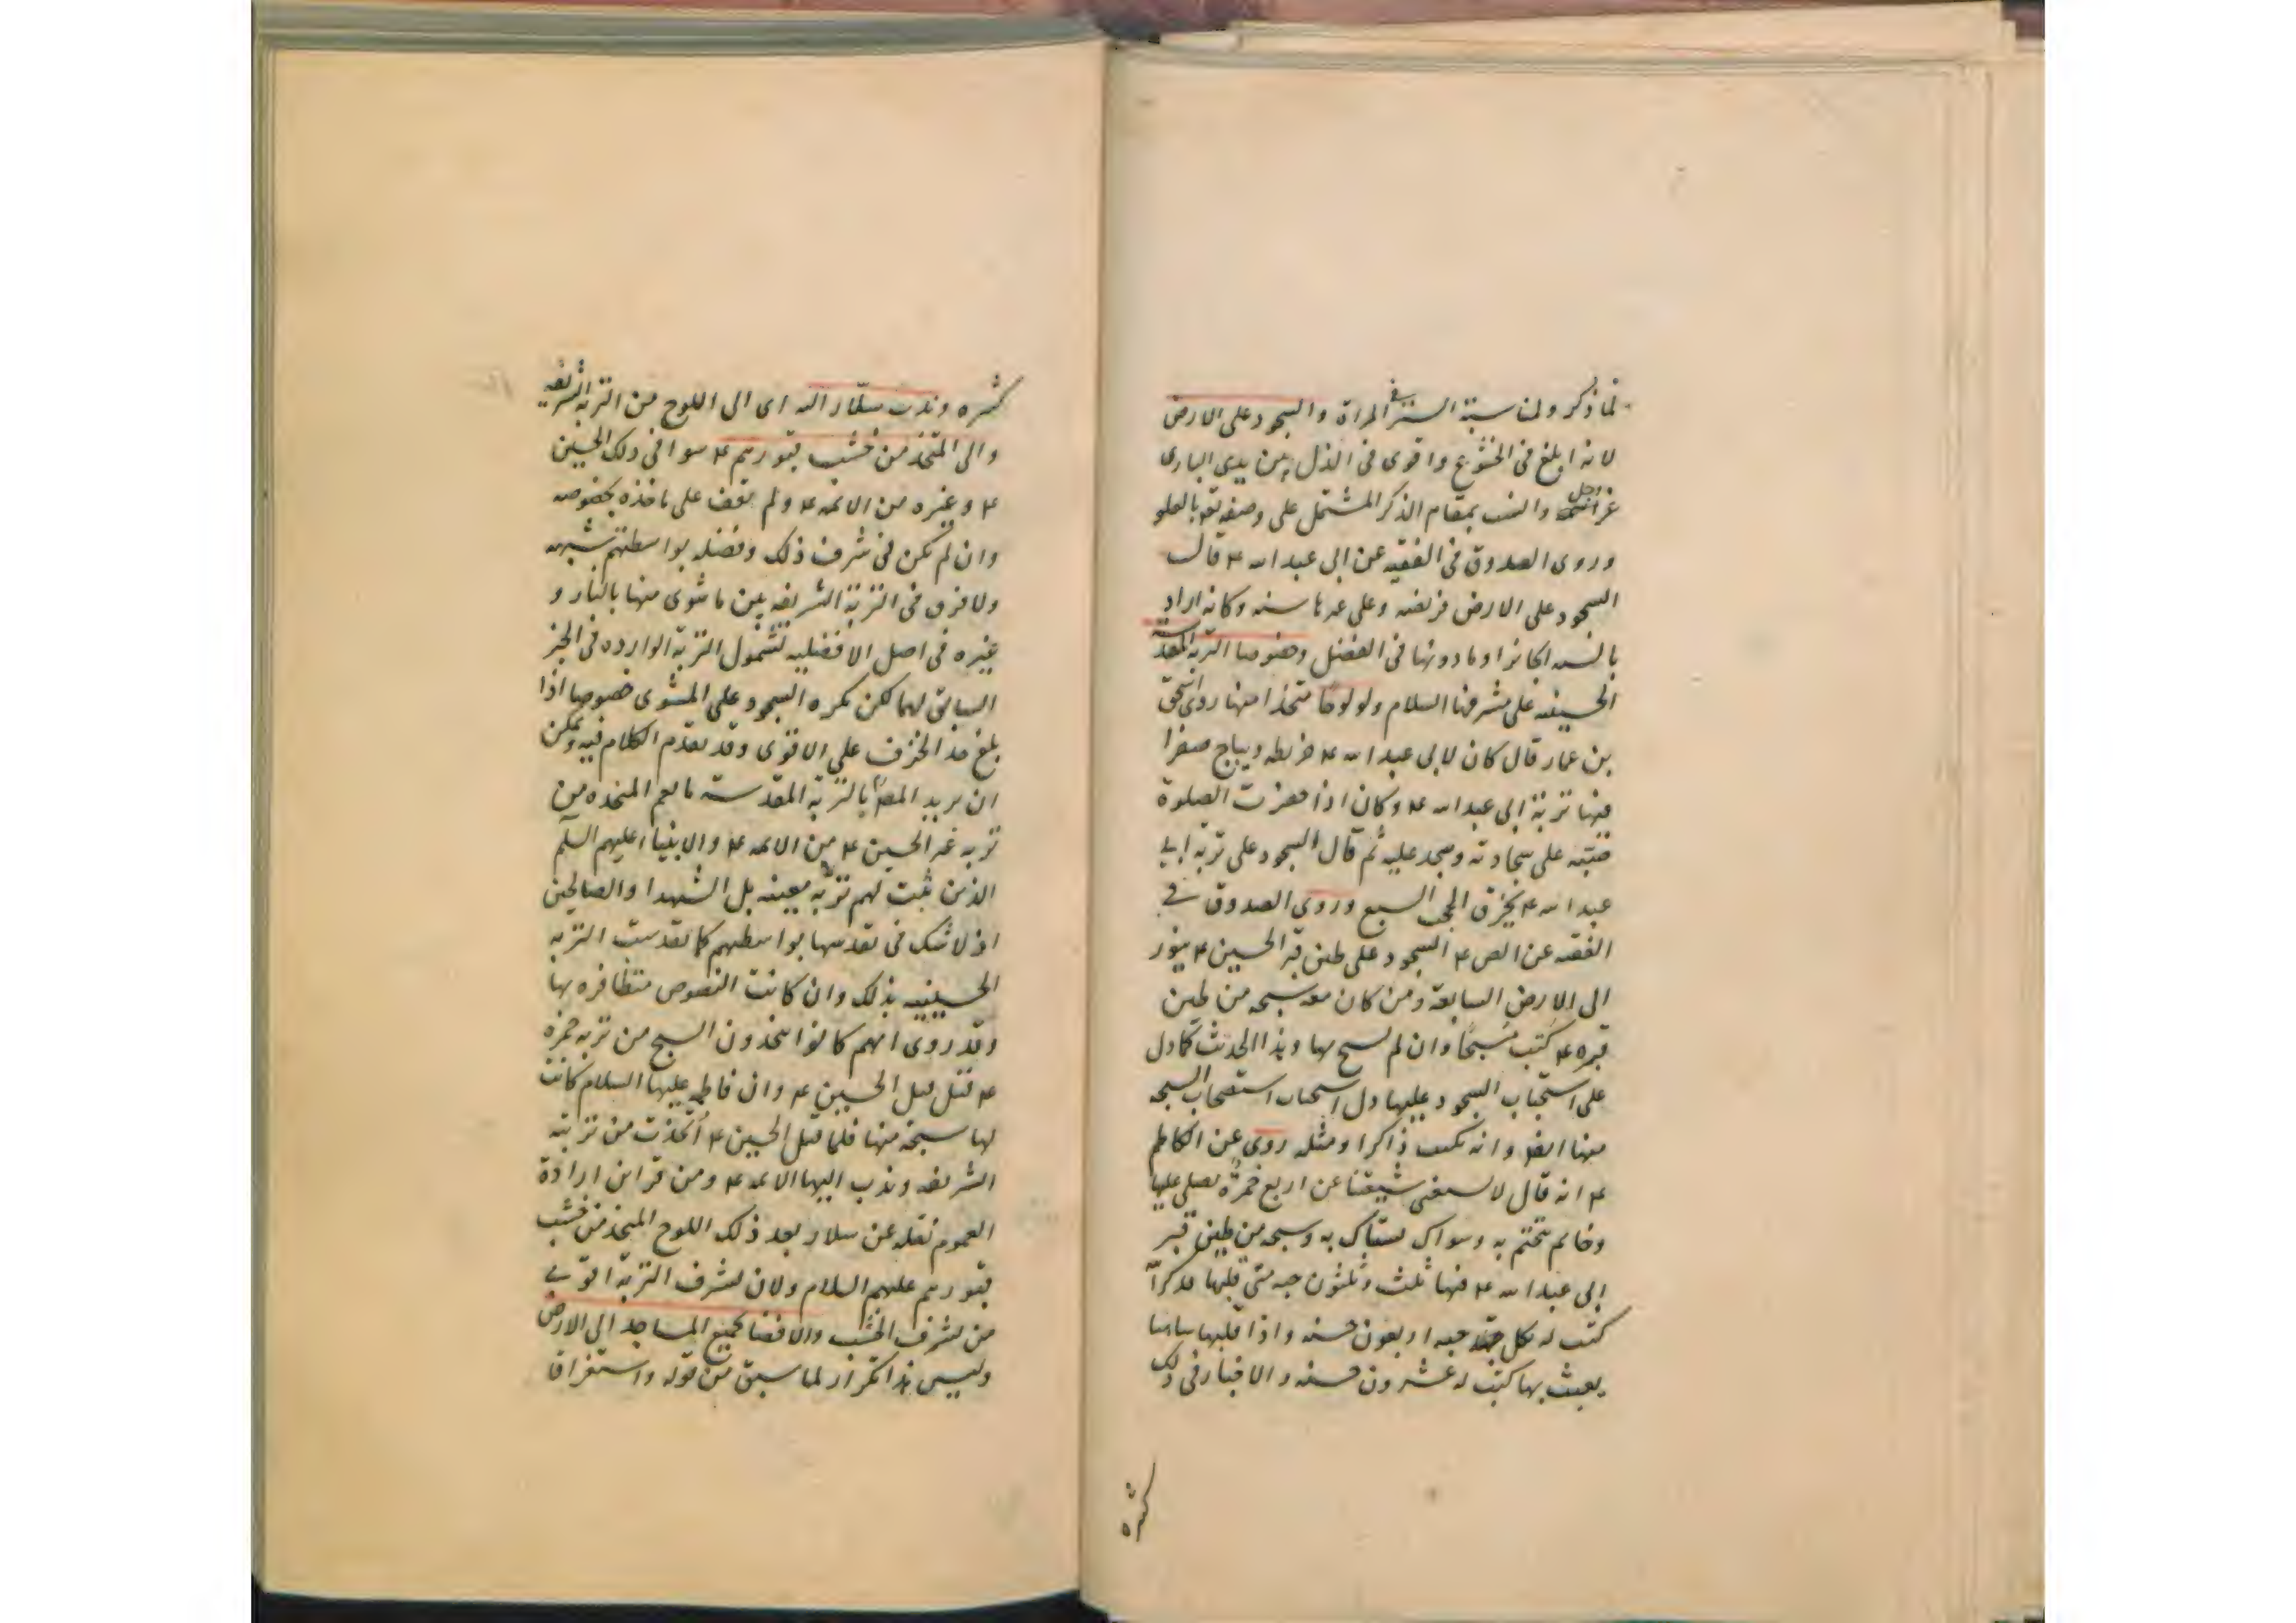 لما ذكر ولمناسبة الستر في المراة والسجود على الارض
لانه ابلغ في الخشوع واقوى في الذل بين يدي الباري
عز وجل وانسب بمقام الذكر المشتمل على وصفه تعه بالعلو
وروى الصدوق في الفقيه عن ابي عبد الله ع قال
السجود على الارض فريضه وعلى غيرها سنه وكانه اراد
بالسنه الجائز او ما دونها في الفضل وخصوصا التربة المقدسة
الحسينيه على مشرفها السلام ولو لوحا متخذا منها روى اسحق
بن عمار قال كان لابي عبد الله ع خريطه ديباج صفرا
فيها تربة ابي عبد الله ع وكان اذا حضرت الصلوة
صبّه على سجادته وسجد عليه ثم قال السجود على تربة ابي
عبد الله ع يخرق الحجب السبع وروى الصدوق في
الفقيه عن الص ع السجود على طين قبر الحسين ع ينور
الى الارض السابعة ومن كان معه سبحه من طين
قبره ع كتب مُسَبّحًا وان لم يسبح بها وهذا الحديث كما دل
على استحباب السجود عليها دل استحباب استصحاب السبحه
منها ايضا وانه يكتب ذاكرا ومثله روى عن الكاظم
ع انه قال لا يستغني شيعتنا عن اربع خُمْرَة يصلى عليها
وخاتم يتختم به وسواك يستاك به وسبحه من طين قبر
ابي عبد الله ع فيها ثلث وثلثون حبه متى قلبها ذاكرا لله
كتب له بكل حبه اربعون حسنه واذا قلبها ساهيا
يعبث بها كتب له عشرون حسنه والاخبار في ذلك
كثيره
كثيره وندب سلّار اليه اى الى اللوح من التربة الشريفه
والى المتخذ من خشب قبورهم ع سوا في ذلك الحسين
ع وغيره من الائمه ع ولم نقف على ماخذه بخصوصه
وان لم يكن في شرف ذلك وفضله بواسطتهم شبهه
ولا فرق في التربة الشريفه بين ما شوى منها بالنار و
غيره في اصل الافضليه لشمول التربة الوارده في الخبر
السابق لهما لكن يكره السجود على المشوى خصوصا اذا
بلغ حد الخزف على الاقوى وقد تقدم الكلام فيه ويمكن
ان يريد المص بالتربة المقدسة ما يعم المتخذه من
تربه غير الحسين ع من الائمه ع والانبيا عليهم السلم
الذين ثبت لهم تربة معينه بل الشهدا والصالحين
اذ لا شك في تقدسها بواسطهم كما تقدست التربه
الحسينيه بذلك وان كانت النصوص متظافره بها
وقد روى انهم كانوا يتخذون السبح من تربه حمزه
ع قبل قتل الحسين ع وان فاطمه عليها السلام كانت
لها سبحة منها فلما قتل الحسين ع اتخذت من تربته
الشريفه وندب اليها الائمه ع ومن قراين ارادة
العموم نقله عن سلار بعد ذلك اللوح المتخذ من خشب
قبورهم عليهم السلام ولان لشرف التربة اقوى
من لشرف الخشب والافضا بجميع المساجد الى الارض
وليس هذا تكرار لما سبق من قوله واستغراقا